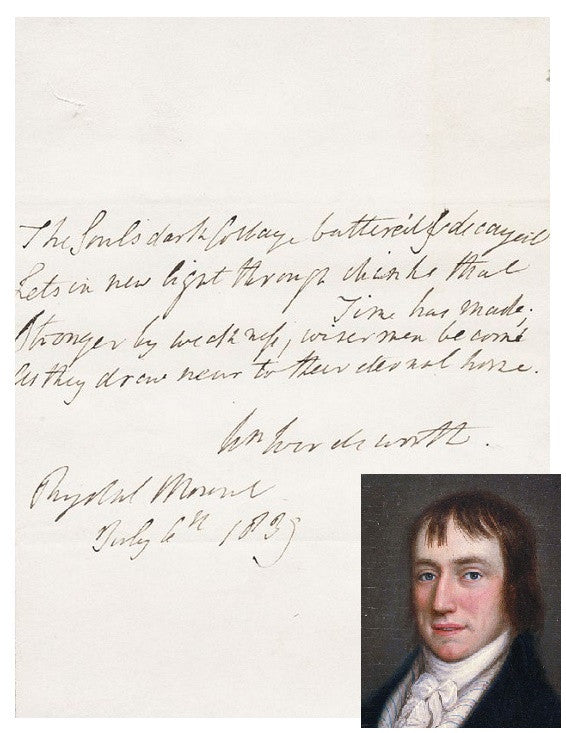 The Soul's dark Cottage batter'd & decayed
Lets in new light through chinks that
Time has made.
Stronger by weakness, wiser men become
As they draw near to their eternal home.
Wm Wordsworth.
Rydal Mount
July 6th 1839